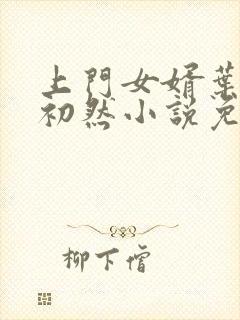 上門女婿葉
初然小說免
柳下僧